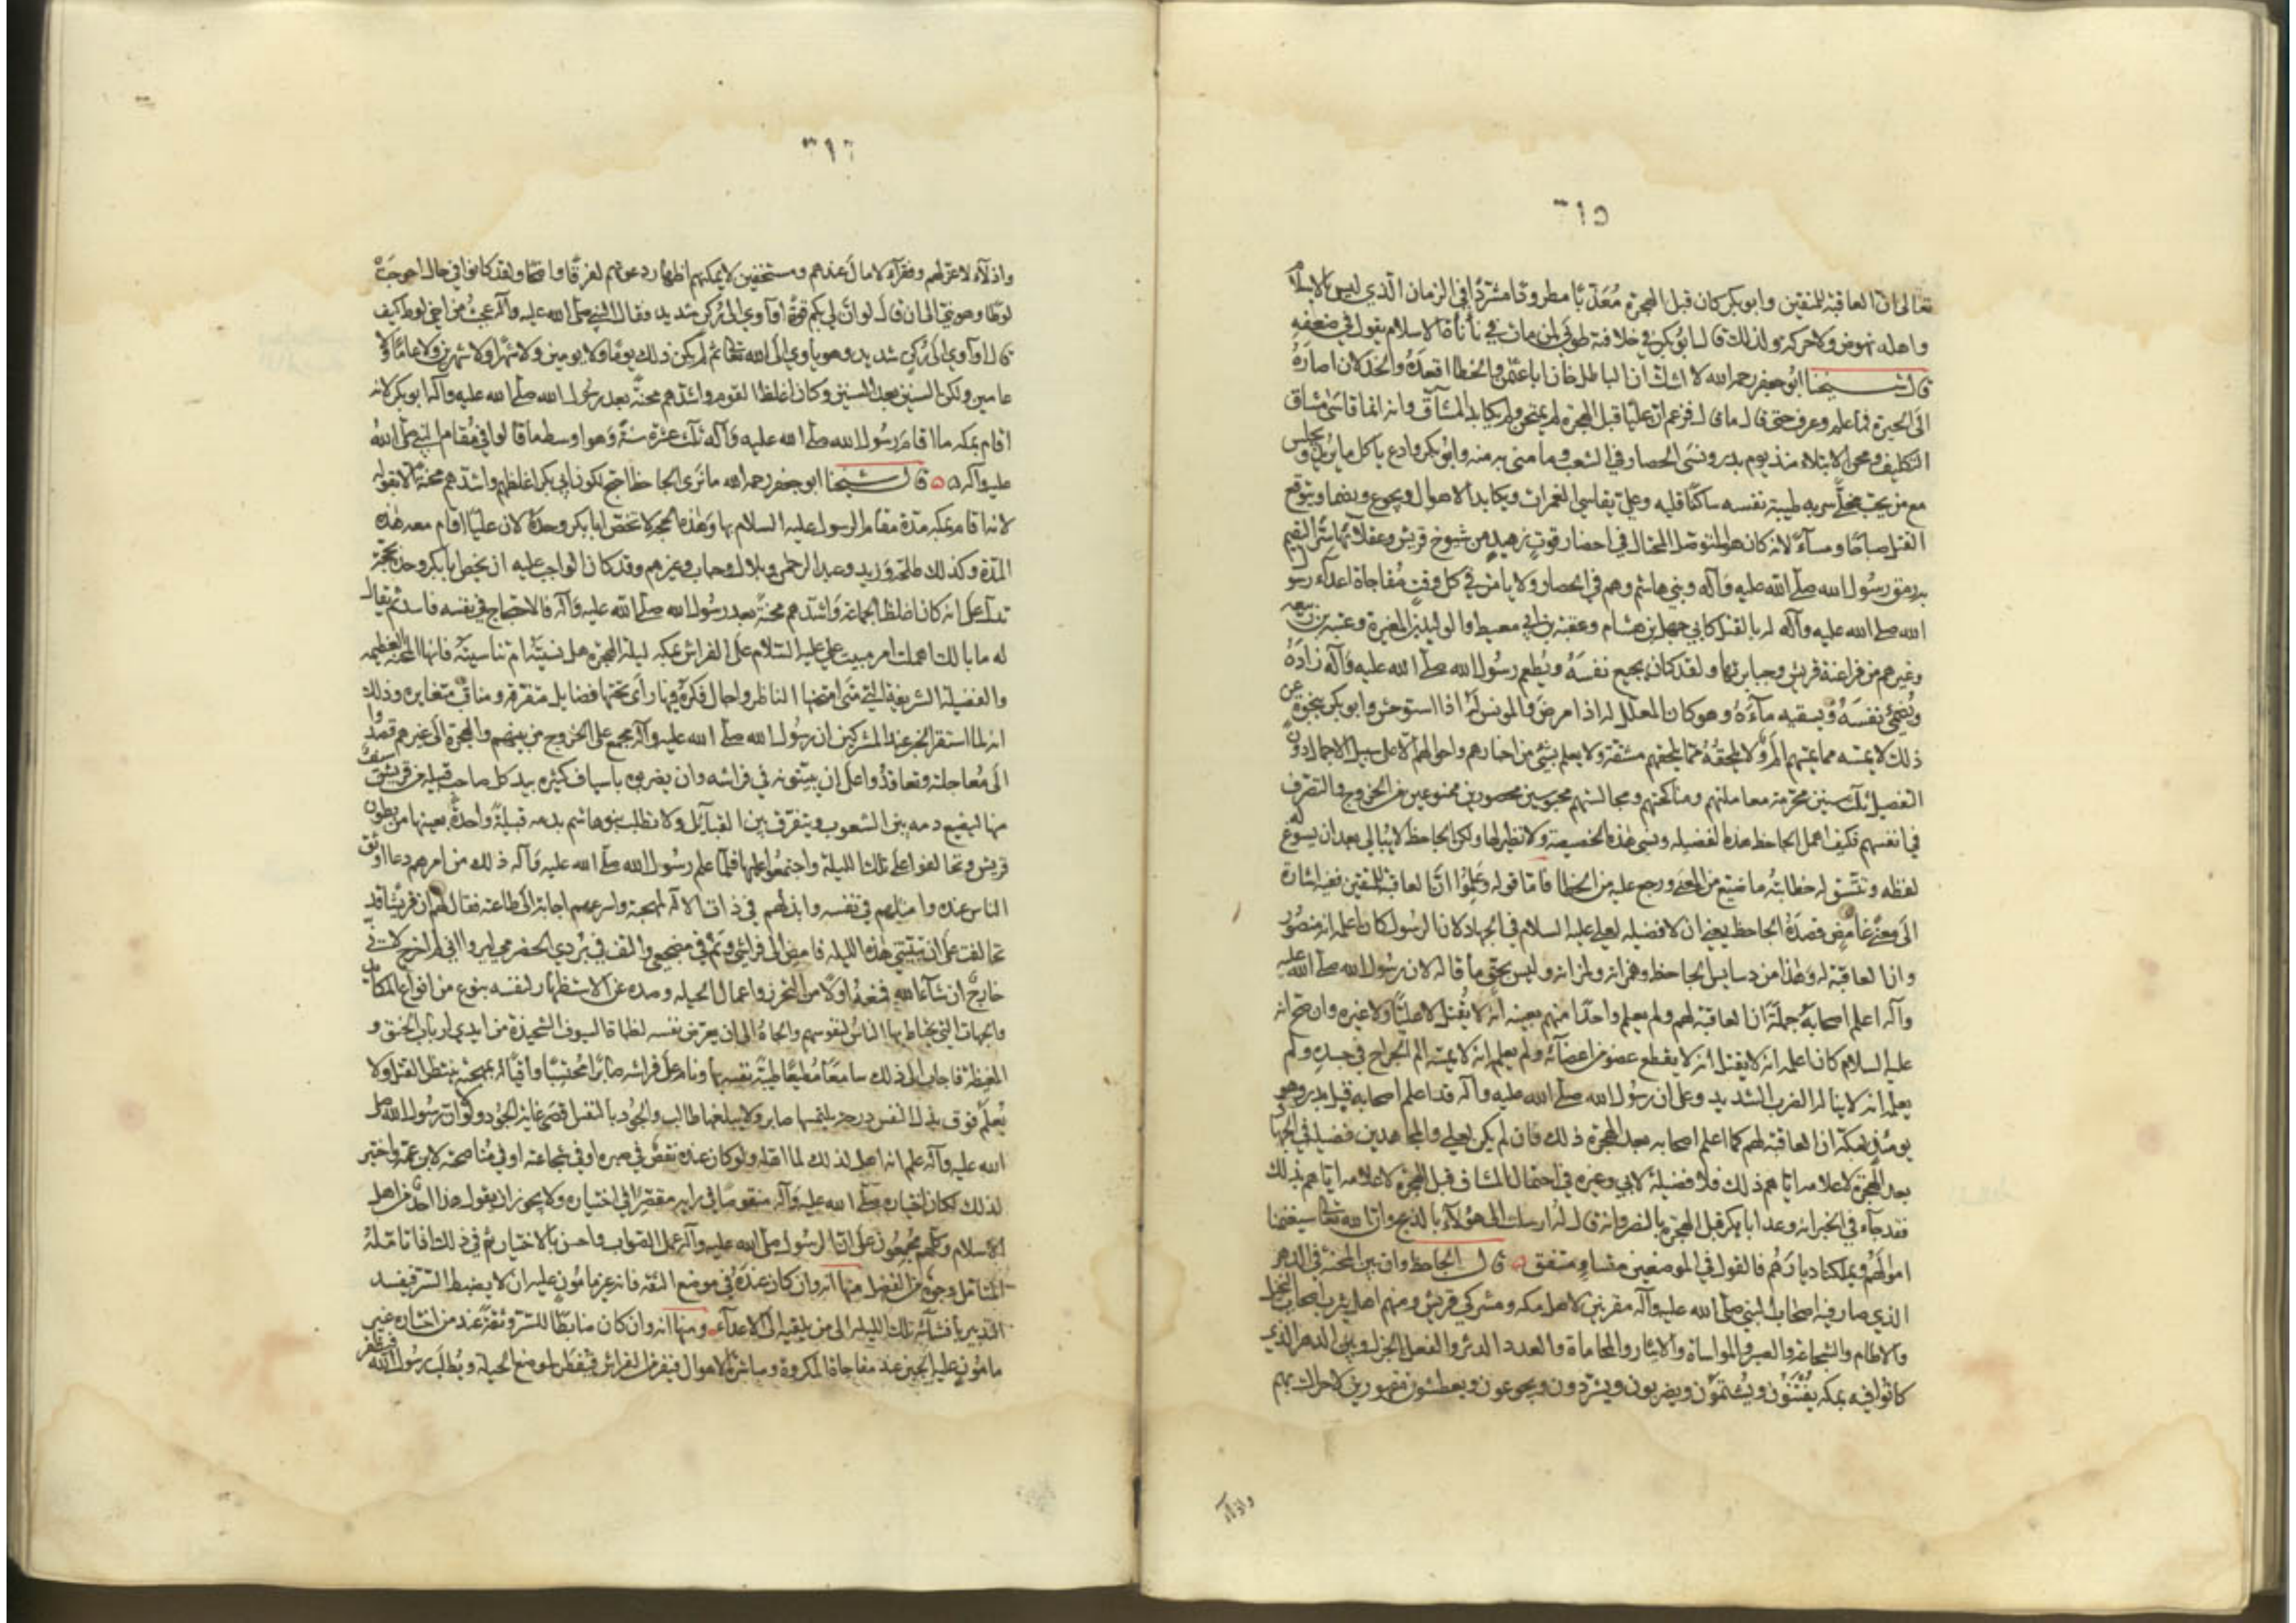 ٣١٥
تعالى ان العاقبة للمتقين وابو بكر كان قبل الهجرة معذبا مطرودا مشردا في الزمان الذي ليس بالاسلام
واهله نهوض ولا حركة ولذلك قال ابو بكر في خلافته طوبى لمن مات في نأنأة الاسلام يقول في ضعفه
قال شيخنا ابو جعفر رحمه الله لا اشك ان الباطل خان ابا عثمن والخطا اقعده والخذلان اصاره
الى الحيرة فما علم وعرف حتى قال ما قال فزعم ان عليا قبل الهجرة لم يمتحن ولم يكابد المشاق وانه انما قاسى مشاق
التكليف ومحن الابتلاء منذ يوم بدر ونسى الحصار في الشعب وما منى به منه وابو بكر وادع ياكل ما يريد ويجلس
مع من يحب مخلى سربه طيبة نفسه ساكنا قلبه وعلي يقاسي الغمرات ويكابد الاهوال ويجوع ويظما ويتوقع
القتل صباحا ومساء لانه كان هو المتوصل المحتال في احضار قوت زهيد من شيوخ قريش وعقلائها سرا ليقيم
به رمق رسول الله صلى الله عليه وآله وبني هاشم وهم في الحصار ولا يامن في كل وقت مفاجاة اعداء رسول
الله صلى الله عليه وآله له بالقتل كابي جهل بن هشام وعقبة بن ابي معيط والوليد بن المغيرة وعتبة بن ربيعة
وغيرهم من فراعنة قريش وجبابرتها ولقد كان يجيع نفسه ويطعم رسول الله صلى الله عليه وآله زاده
ويظمئ نفسه ويسقيه ماءه وهو كان المعلل له اذا مرض والمونس له اذا استوحش وابو بكر بنجوة عن
ذلك لا يمسه مما يمسهم الم ولا يلحقه مما يلحقهم مشقة ولا يعلم بشئ من اخبارهم واحوالهم الا على سبيل الاجمال دون
التفصيل ثلث سنين محرمة معاملتهم ومناكحتهم ومجالستهم محبوسين محصورين ممنوعين من الخروج والتصرف
في انفسهم فكيف اهمل الجاحظ هذه الفضيلة ونسى هذه الخصيصة ولا نظير لها ولكن الجاحظ لا يبالي بعد ان يسوغ له
لفظه وتنسق له خطابته ما ضيع من المعنى ورجع عليه من الخطا فاما قوله وعلموا ان العاقبة للمتقين ففيه اشارة
الى معنى غامض قصده الجاحظ يعني ان لا فضيلة لعلي عليه السلام في الجهاد لان الرسول كان اعلمه انه منصور
وان العاقبة له وهذا من دسايس الجاحظ وهمزاته ولمزاته وليس بحق ما قاله لان رسول الله صلى الله عليه
وآله اعلم اصحابه جملة ان العاقبة لهم ولم يعلم واحدا منهم بعينه انه لا يقتل لا عليا ولا غيره وان صح انه
عليه السلام كان اعلمه انه لا يقتل انه لا يقطع عضو من اعضائه ولم يعلمه انه لا يمسه الم الجراح في جسده ولم
يعلمه انه لا يناله الضرب الشديد وعلى ان رسول الله صلى الله عليه وآله قد اعلم اصحابه قبل بدر وهو
يومئذ بمكة ان العاقبة لهم كما اعلم اصحابه بعد الهجرة ذلك فان لم يكن لعلي والمجاهدين فضيلة في الجهاد
بعد الهجرة لاعلامه اياهم ذلك فلا فضيلة لابي وغيره في احتمال المشاق قبل الهجرة لاعلامه اياهم بذلك
فقد جاء في الخبر انه وعد ابا بكر قبل الهجرة بالنصر وانه قال له ارسلت الى هؤلاء بالذبح وان الله تعالى سيغنمنا
اموالهم ويملكنا ديارهم فالقول في الموضعين متساو ومتفق قال الجاحظ وان بين المحنة في الدهر
الذي صار فيه اصحاب النبي صلى الله عليه وآله مقرنين لاهل مكة ومشركي قريش ومعهم اهل يثرب اصحاب النخيل
والاطام والشجاعة والصبر والمواساة والايثار والمحاماة والعدد الدثر والفعل الجزل وبين الدهر الذي
كانوا فيه بمكة يفتنون ويشتمون ويضربون ويشردون ويجوعون ويعطشون مقهورين لا حراك بهم
واذلاء
٣١٦
واذلاء لا عز لهم وفقراء لا مال عندهم ومستخفين لا يمكنهم اظهار دعوتهم لفرقا واضحا ولقد كانوا في حال احوجت
لوطا وهو نبي الى ان قال لو ان لي بكم قوة او آوي الى ركن شديد وقال النبي صلى الله عليه وآله عجبت من اخي لوط كيف
قال او آوي الى ركن شديد وهو ياوي الى الله تعالى ثم لم يكن ذلك يوما ولا يومين ولا شهرا ولا شهرين ولا عاما ولا
عامين ولكن السنين بعد السنين وكان اغلظ القوم واشدهم محنة بعد رسول الله صلى الله عليه وآله ابو بكر لانه
اقام بمكة ما اقام رسول الله صلى الله عليه وآله ثلث عشرة سنة وهو اوسط ما قالوا في مقام النبي صلى الله
عليه وآله قال شيخنا ابو جعفر رحمه الله ما نرى الجاحظ احتج لكون ابي بكر اغلظهم واشدهم محنة الا بقوله
لانه اقام بمكة مدة مقام الرسول عليه السلام بها وهذه الحجة لا تخص ابا بكر وحده لان عليا اقام معه هذه
المدة وكذلك طلحة وزيد وعبد الرحمن وبلال وخباب وغيرهم وقد كان الواجب عليه ان يخص ابا بكر وحده بحجة
تدل على انه كان اغلظ الجماعة واشدهم محنة بعد رسول الله صلى الله عليه وآله فالاحتجاج في نفسه فاسد ثم يقال
له ما بالك اهملت امر مبيت علي عليه السلام على الفراش بمكة ليلة الهجرة هل نسيته ام تناسيته فانها المحنة العظيمة
والفضيلة الشريفة التي متى امتحنها الناظر واجال فكره فيها راى تحتها فضايل متفرقة ومناقب متغايرة وذلك
انه لما استقر الخبر عند المشركين ان رسول الله صلى الله عليه وآله مجمع على الخروج من بينهم والهجرة الى غيرهم قصدوا
الى معاجلته وتعاقدوا على ان يبيتونه في فراشه وان يضربوه باسياف كثيرة بيد كل صاحب قبيلة من قريش سيف
منها ليضيع دمه بين الشعوب ويتفرق بين القبائل ولا تطلب بنو هاشم بدمه قبيلة واحدة بعينها من بطون
قريش وتحالفوا على تلك الليلة واجتمعوا عليها فلما علم رسول الله صلى الله عليه وآله ذلك من امرهم دعا اوثق
الناس عنده وامثلهم في نفسه وابذلهم في ذات الاله لمهجته واسرعهم اجابة الى طاعته فقال له ان قريشا قد
تحالفت على ان تبيتني هذه الليلة فامض الى فراشي ونم في مضجعي والتف في بردي الحضرمي ليروا اني لم اخرج واني
خارج ان شاء الله فمنعه اولا من التحرز واعمال الحيلة وصده عن الاستظهار لنفسه بنوع من انواع المكايد
والجهات التي يحتاط بها الناس لنفوسهم والجاه الى ان يعرض نفسه لظبات السيوف الشحيذة من ايدي ارباب الحنق و
الغيظة فاجاب الى ذلك سامعا مطيعا طيبة نفسه بها ونام على فراشه صابرا محتسبا واقيا له بمهجته ينتظر القتل ولا
يعلم فوق بذل النفس درجة يلتمسها صابر ولا يبلغها طالب والجود بالنفس اقصى غاية الجود ولولا ان رسول الله صلى
الله عليه وآله علم انه اهل لذلك لما اهله ولو كان عنده نقص في صبره او في شجاعته او في مناصحته لابن عمه واختير
لذلك لكان اختياره صلى الله عليه وآله منقوصا في رايه مقصرا في اختياره ولا يجوز ان يقول هذا احد من اهل
الاسلام وكلهم مجمعون على ان الرسول صلى الله عليه وآله عمل الصواب واحسن بالاختيار ثم في ذلك اذا تامله
المتامل وجوه من الفضل منها انه وان كان عنده في موضع الثقة فانه غير مامون عليه ان لا يضبط السر فيفسد
التدبير بافشائه تلك الليلة الى من يلقيه الى الاعداء ومنها انه وان كان ضابطا للسر وثقة عند من اختاره فغير
مامون عليه الجبن عند مفاجاة المكروه ومباشرة الاهوال فيفر من الفراش فيفطن لموضع الحيلة ويطلب رسول الله فيظفر